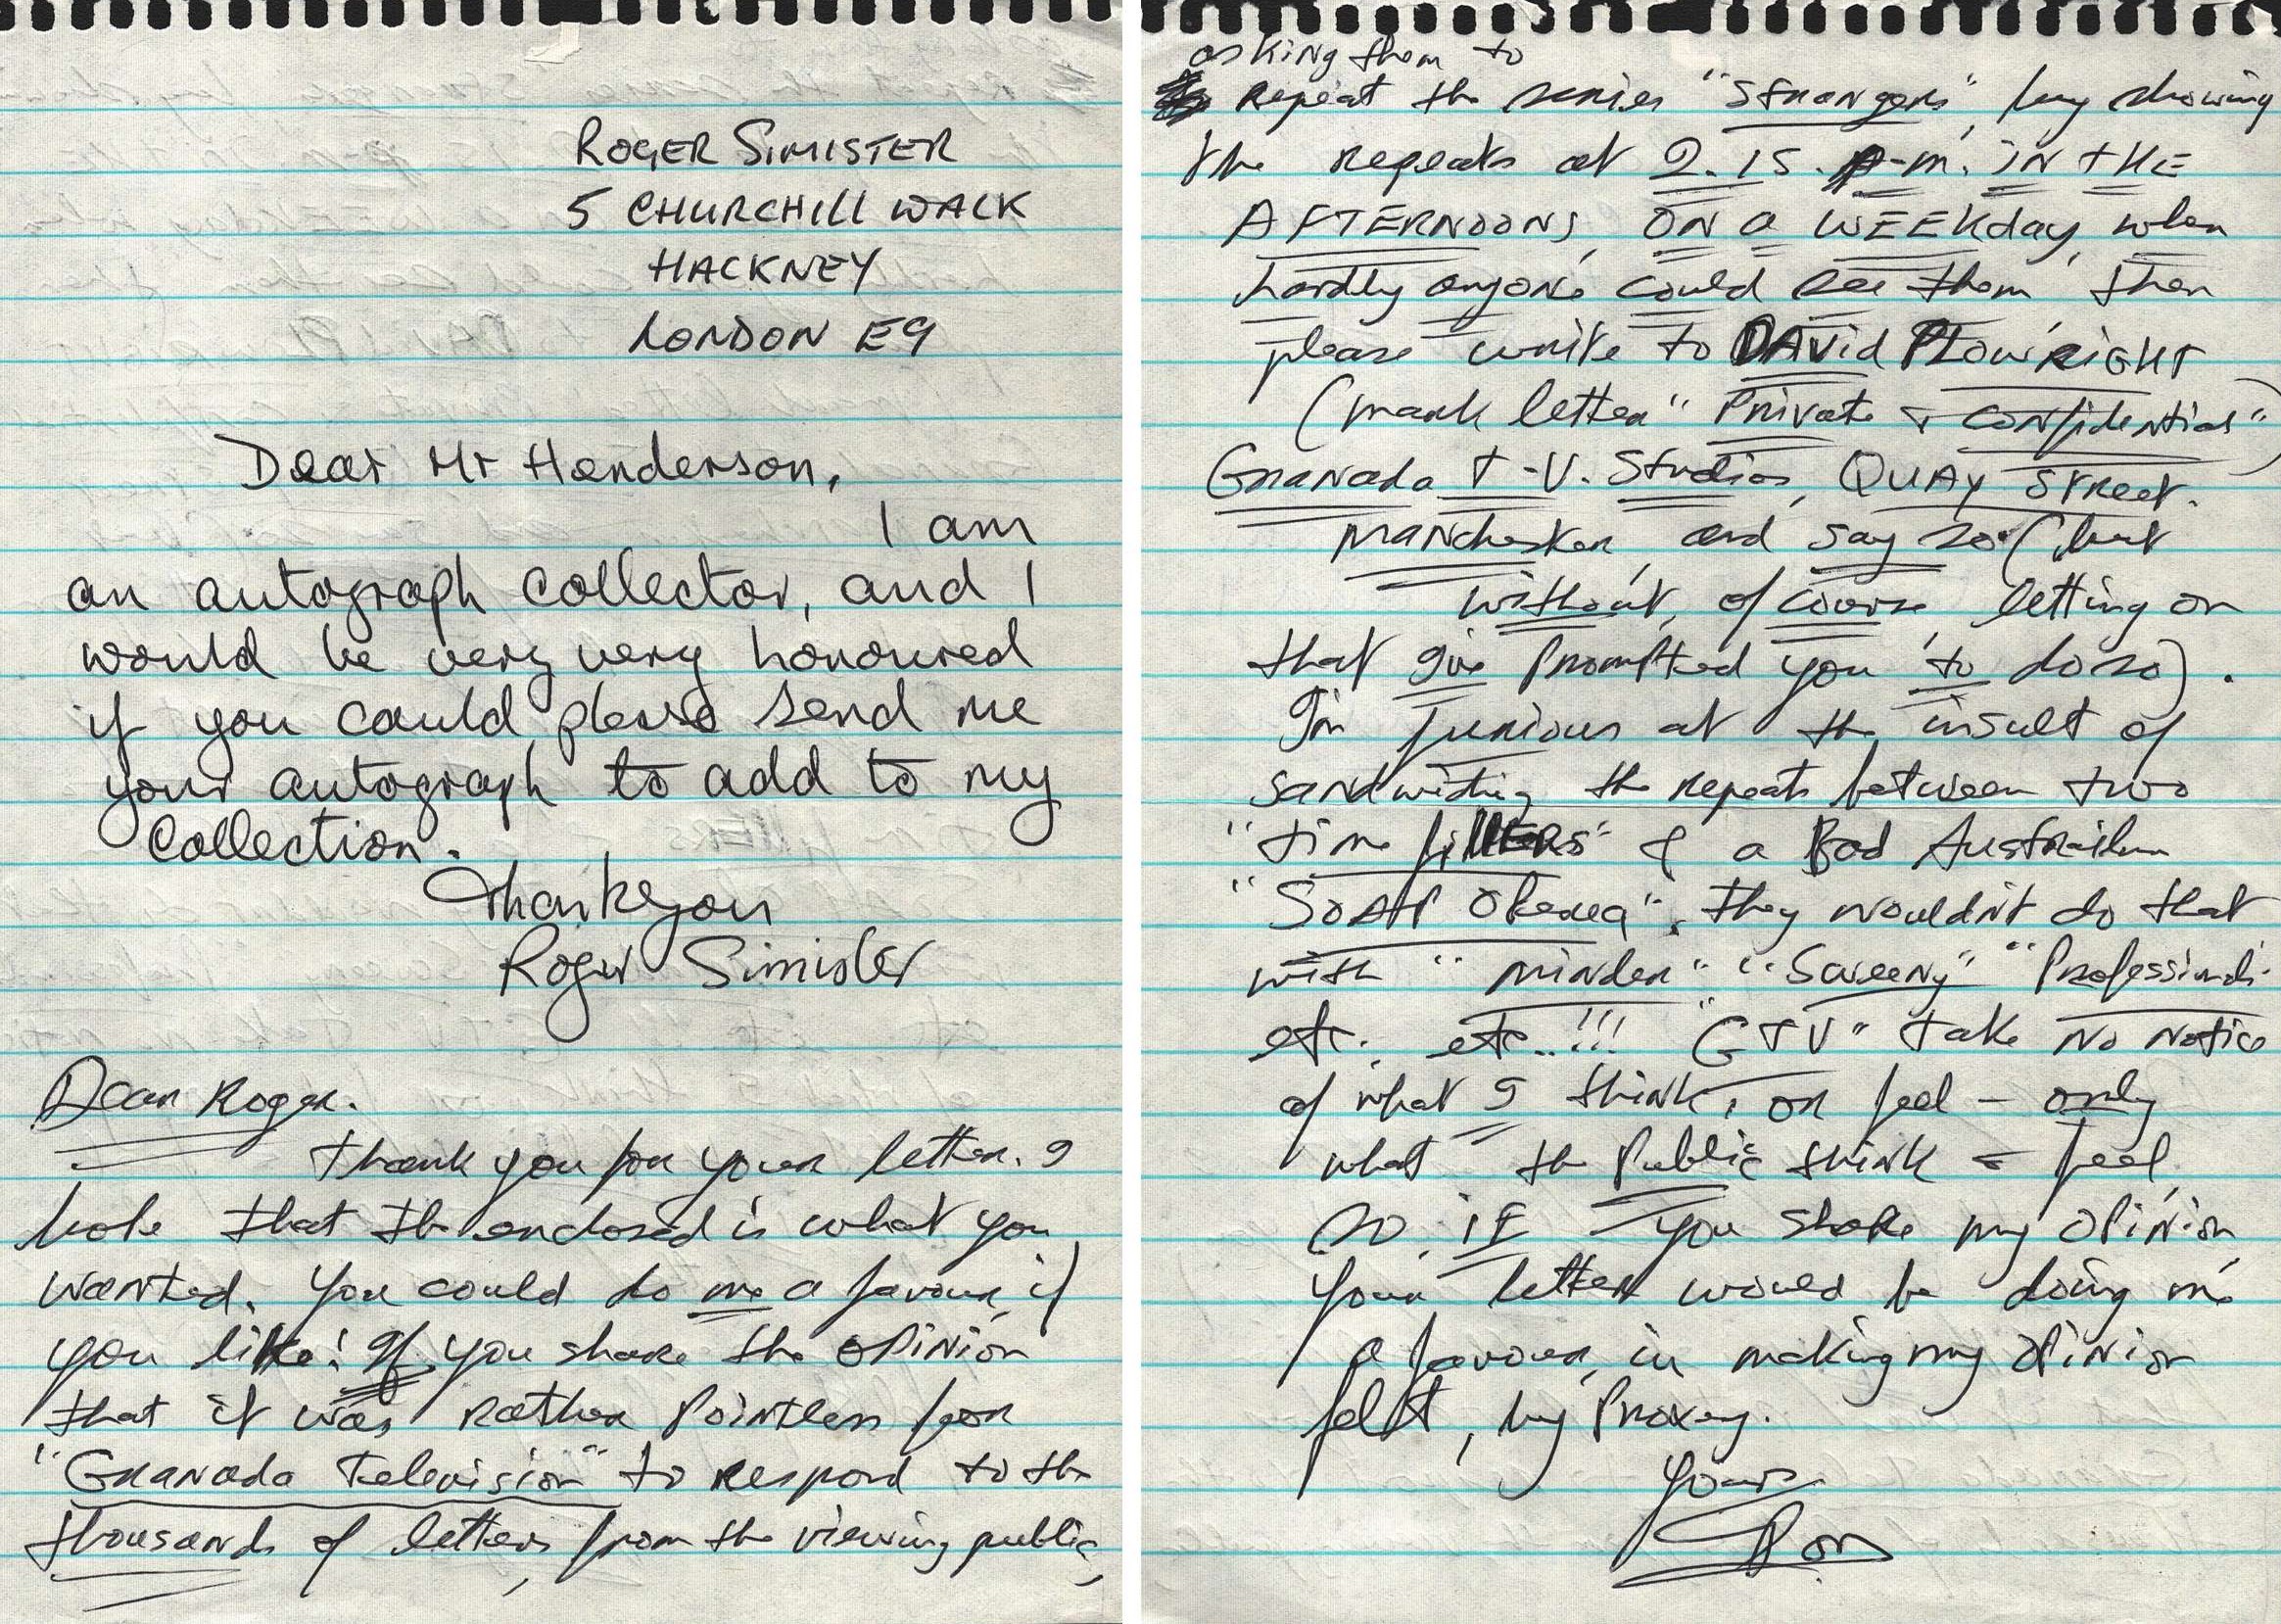 ROGER SIMISTER
5 CHURCHILL WALK
HACKNEY
LONDON E9
Dear Mr Henderson,
I am
an autograph collector, and I
would be very very honoured
if you could please send me
your autograph to add to my
Collection.
Thankyou
Roger Simister
Dear Roger.
Thank you for your letter. I
hope that the enclosed is what you
wanted. You could do me a favour, if
you like! If you share the OPINION
that it was rather Pointless for
"Granada Television" to respond to the
thousands of letters, from the viewing public,
asking them to
repeat the series "Strangers", by showing
the repeats at 2.15. p-m. IN THE
AFTERNOONS, ON a WEEKday, when
hardly anyone could see them, then
please write to DAVid PLOWRIGHT
(mark letter "Private & Confidential")
GRANADA T-V. Studios, QUAY STREET.
MANchester, and say so (but
without, of course, letting on
that I've Prompted you to do so).
I'm furious at the insult of
sandwiching the repeats between two
"time fillERS" & a Bad Australian
"SOAP Opera". They wouldn't do that
with "minder" "Sweeny" "Professionals"
etc. etc..!!! "GTV" take NO Notice
of what I think, or feel - only
what the Public think & feel
so, IF you share my OPINION
your letter would be doing me
a favour, in making my OPINION
felt, by Proxey.
Yours
Ron